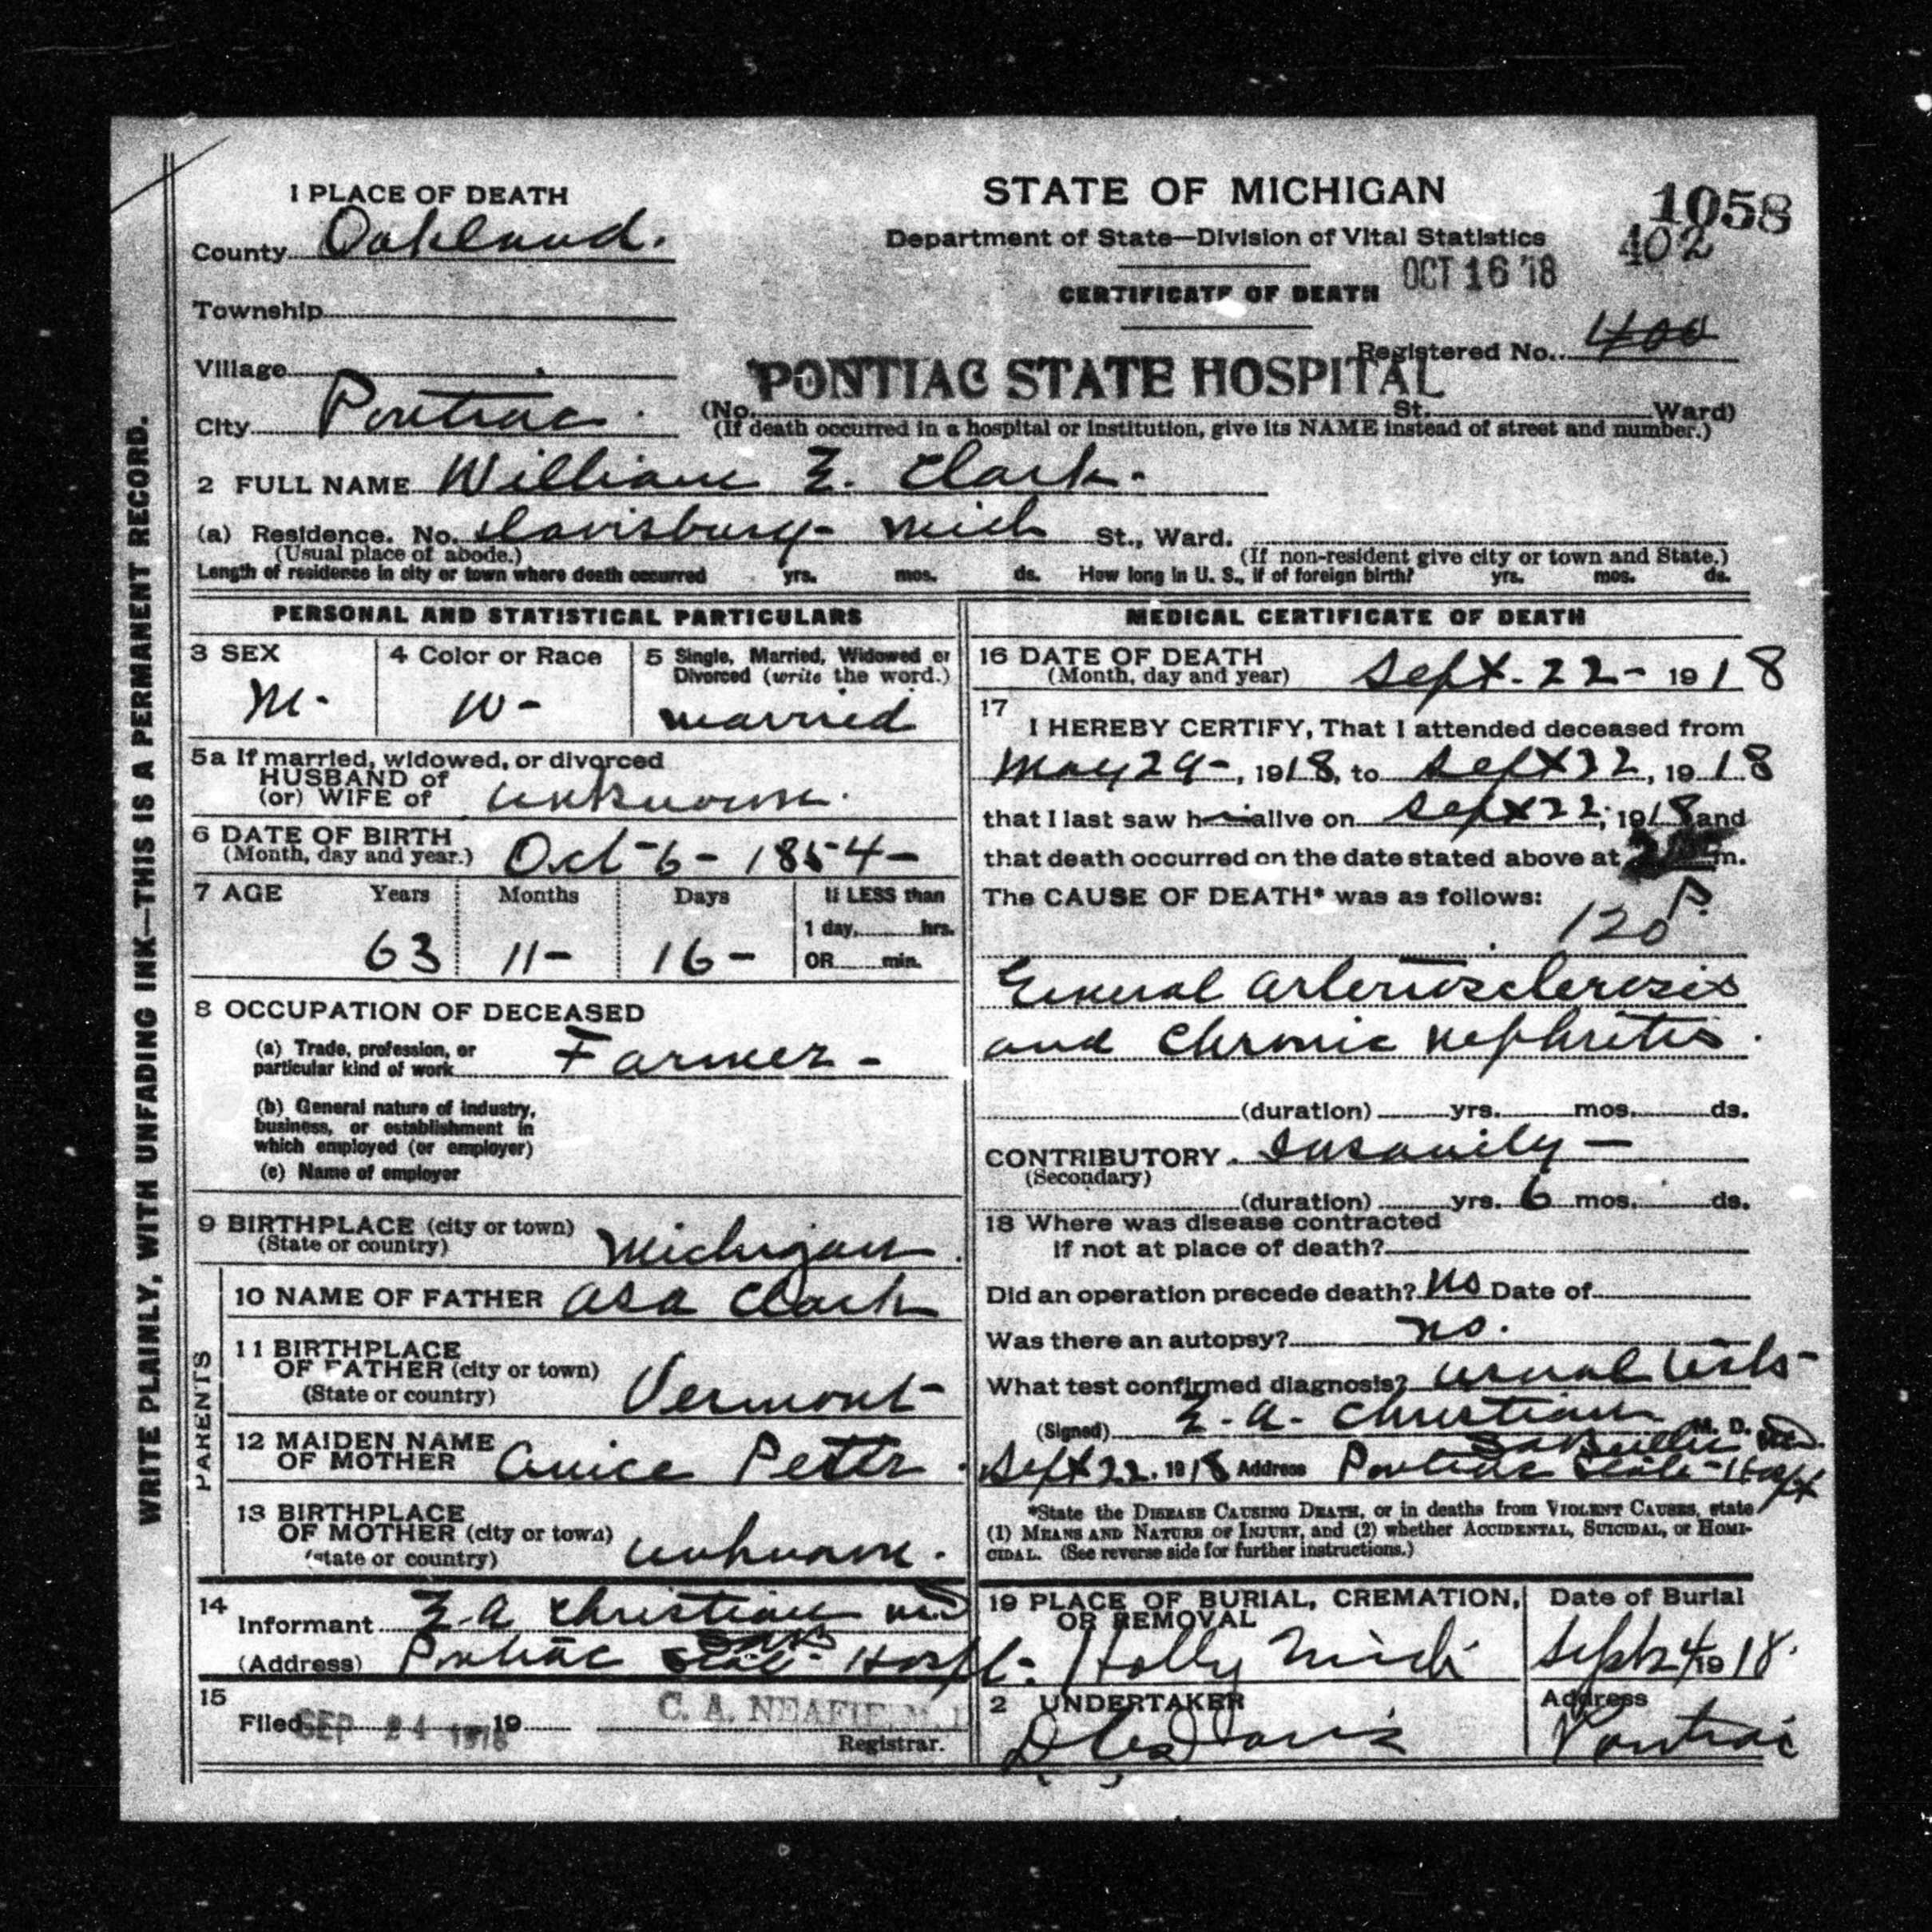 1 PLACE OF DEATH
County Oakland.
Township
Village
City Pontiac.
STATE OF MICHIGAN
Department of State—Division of Vital Statistics
CERTIFICATE OF DEATH
OCT 16 '18
1058
402
Registered No. 400
PONTIAC STATE HOSPITAL
(No. St. Ward)
(If death occurred in a hospital or institution, give its NAME instead of street and number.)
2 FULL NAME William E. Clark.
(a) Residence. No. Davisburg - Mich St., Ward.
(Usual place of abode.) (If non-resident give city or town and State.)
Length of residence in city or town where death occurred yrs. mos. ds. How long in U. S., if of foreign birth? yrs. mos. ds.
PERSONAL AND STATISTICAL PARTICULARS
3 SEX
M-
4 Color or Race
W-
5 Single, Married, Widowed or
Divorced (write the word.)
married
5a If married, widowed, or divorced
HUSBAND of
(or) WIFE of unknown.
6 DATE OF BIRTH
(Month, day and year.) Oct-6-1854-
7 AGE Years Months Days If LESS than
1 day, hrs.
63 11- 16- OR min.
8 OCCUPATION OF DECEASED
(a) Trade, profession, or
particular kind of work Farmer-
(b) General nature of industry,
business, or establishment in
which employed (or employer)
(c) Name of employer
9 BIRTHPLACE (city or town)
(State or country) Michigan.
PARENTS
10 NAME OF FATHER Asa Clark
11 BIRTHPLACE
OF FATHER (city or town)
(State or country) Vermont-
12 MAIDEN NAME
OF MOTHER
13 BIRTHPLACE
OF MOTHER (city or town)
(State or country) unknown.
14
Informant E.A Christian M.D
(Address) Pontiac State- Hospt.
15
Filed SEP 24 1918 19
C. A. NEAFIE, M.D.
Registrar.
MEDICAL CERTIFICATE OF DEATH
16 DATE OF DEATH
(Month, day and year) Sept-22-1918
17
I HEREBY CERTIFY, That I attended deceased from
May 29-, 1918, to Sept 22, 1918
that I last saw him alive on Sept 22, 1918 and
that death occurred on the date stated above at m.
The CAUSE OF DEATH* was as follows:
120
General arteriosclerosis
and Chronic nephritis.
(duration) yrs. mos. ds.
CONTRIBUTORY Insanity-
(Secondary)
(duration) yrs. 6 mos. ds.
18 Where was disease contracted
if not at place of death?
Did an operation precede death? No Date of
Was there an autopsy? no.
What test confirmed diagnosis? usual tests-
(Signed) E.A. Christian M. D.
Sept 22, 1918 Address Pontiac State- Hospt
*State the DISEASE CAUSING DEATH, or in deaths from VIOLENT CAUSES, state
(1) MEANS AND NATURE OF INJURY, and (2) whether ACCIDENTAL, SUICIDAL, or HOMI-
CIDAL. (See reverse side for further instructions.)
19 PLACE OF BURIAL, CREMATION,
OR REMOVAL
Holly Mich
Date of Burial
Sept 24 1918.
2 UNDERTAKER
Davis
Address
Pontiac
WRITE PLAINLY, WITH UNFADING INK—THIS IS A PERMANENT RECORD.